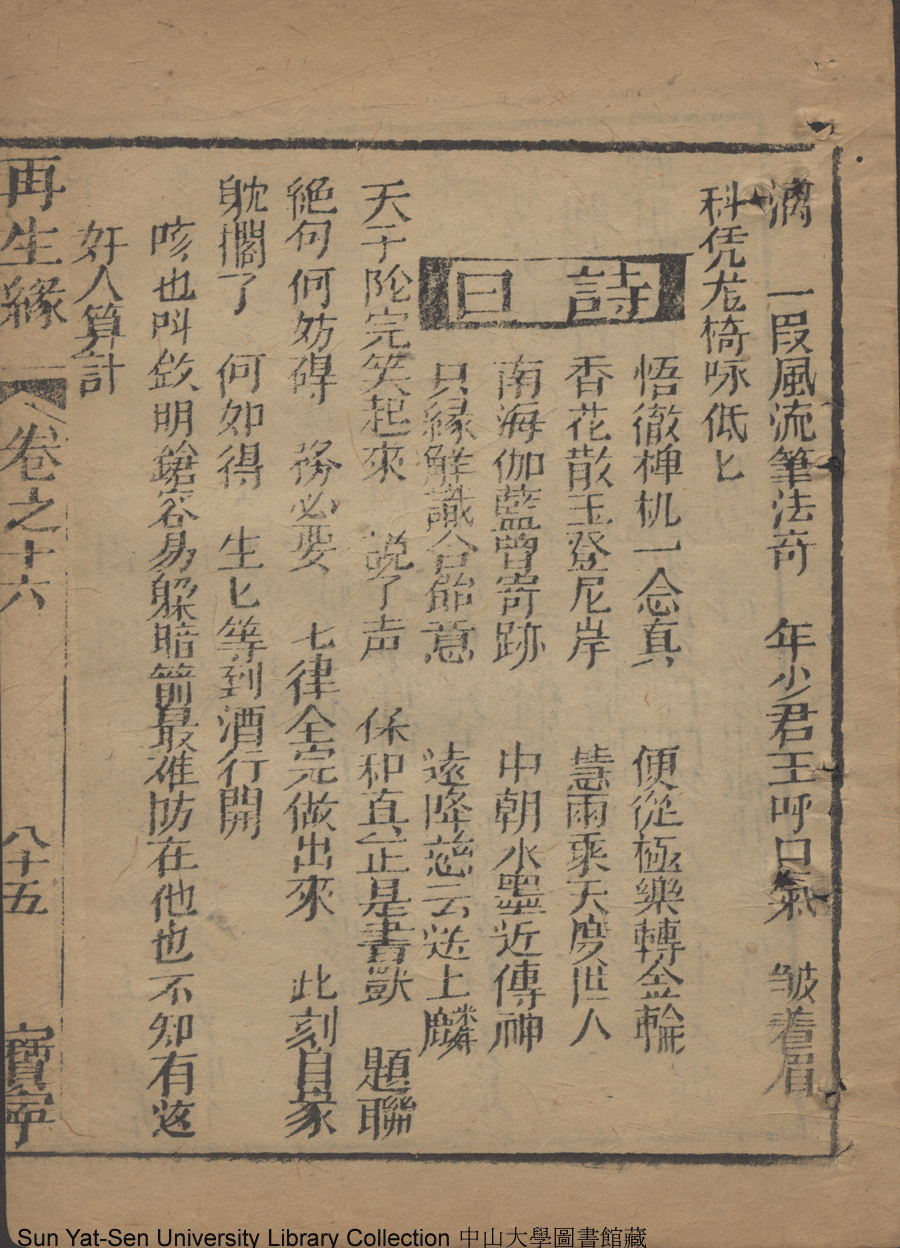 滴　一段風流筆法奇　年少君王呼口氣　皱着眉
科凭龙椅咏低匕
詩曰
悟徹椑机一念真　便從極樂轉金輪
香花散玉登尼岸　慧雨乘天度世人
南海伽藍曾寄跡　中朝水墨近傳神
只緣觧識合飴意　遠降慈云送上麟
天子陀完笑起來　説了声　係和真正是書獃　題聯
絕何何妨碍　務必要　七律全完做出來　此刻自家
躭擱了　何如得　生匕等到酒行開
咳也呌欸明鎗容易躲暗箭最难防在他也不知有这
奸人算計
再生緣　卷之十六　八十五　寶寧
Sun Yat-Sen University Library Collection 中山大學圖書館藏